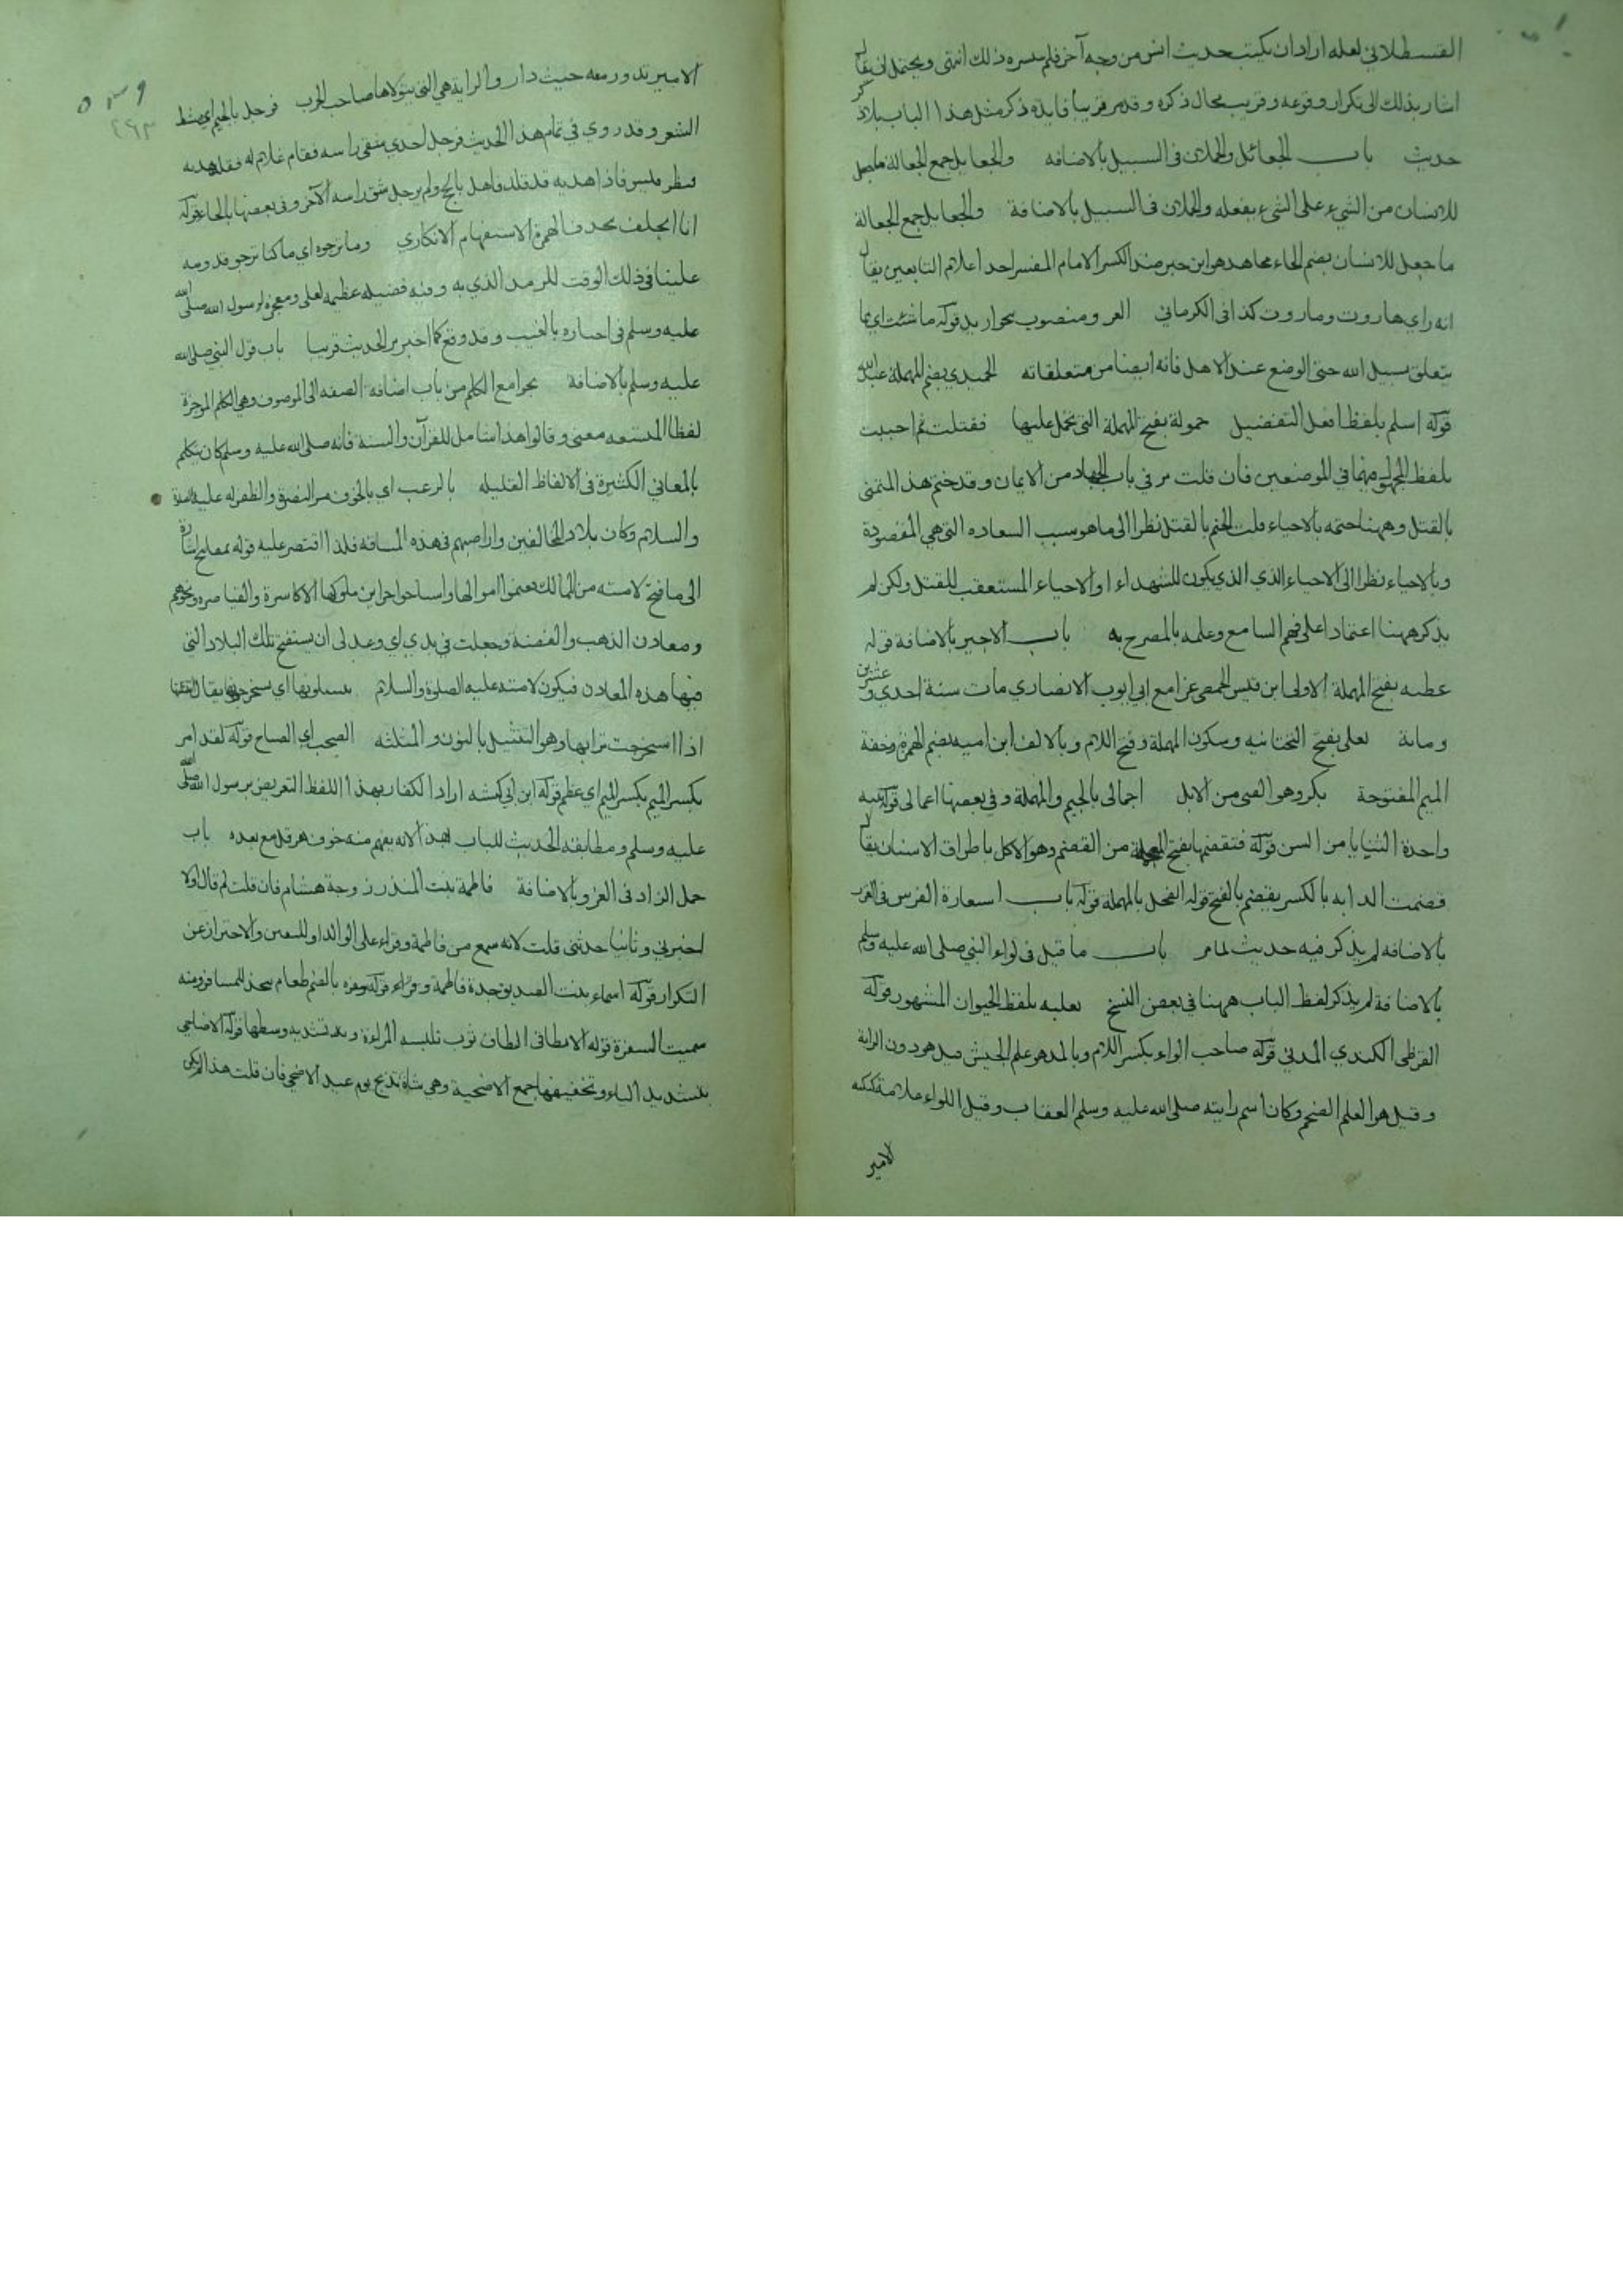 القسطلاني لعله اراد ان يكتب حديث انس من وجه آخر فلم يتيسر ذلك انتهى ويحتمل ان يقال
اشار بذلك الى تكرار وقوعه وقريب بحال ذكره وقد مر قريبا فايدة ذكر مثل هذا الباب بلا ذكر
حديث باب الجعائل والحملان في السبيل بالاضافه والجعايل جمع الجعالة ما يجعل
للانسان من الشيء على الشيء بفعله والحملان في السبيل بالاضافة والجعايل جمع الجعالة
ما جعل للانسان بضم الحاء مجاهد هو ابن جبر ضد الكسر الامام المفسر احد اعلام التابعين يقال
انه راي هاروت وماروت كذا في الكرماني الغزو منصوب بجوار يريد قوله ما شئت اي مما
يتعلق بسبيل الله حتى الوضع عند الاهل فانه ايضا من متعلقاته الحميدي بضم المهملة عبد الله
قوله اسلم بلفظ افعل التفضيل حمولة بفتح المهملة التي يحمل عليها فقتلت ثم احييت
بلفظ المجهول منهما في الموضعين فان قلت مر في باب الجهاد من الايمان وقد ختم هذا المتمنى
بالقتل وههنا ختمه بالاحياء قلت الختم بالقتل نظرا الى ما هو سبب السعاده التي هي المقصودة
وبالاحياء نظرا الى الاحياء الذي الذي يكون للشهداء او الاحياء المستعقب للقتل ولكن لم
يذكر ههنا اعتمادا على فهم السامع وعلمه بالمصرح به باب الاجير بالاضافة قوله
عطيه بفتح المهملة الاولى ابن قيس الحمصي غزا مع ابي ايوب الانصاري مات سنة احدي وعشرين
ومائة يعلى بفتح التحتانيه وسكون المهملة وفتح اللام وبالالف ابن اميه بضم الهمزة وخفة
الميم المفتوحة بكر وهو الفتى من الابل اجمالي بالجيم والمهملة وفي بعضها اعمالي قوله ثنيه
واحدة الثنايا من السن قوله فتقضمها بفتح المعجمة من القضم وهو الاكل باطراف الاسنان يقال
قضمت الدابه بالكسر يقضم بالفتح قوله الفحل بالمهملة قوله باب استعارة الفرس في الغزو
بالاضافه لم يذكر فيه حديث لما مر باب ما قيل في لواء النبي صلى الله عليه وسلم
بالاضافة لم يذكر لفظ الباب ههنا في بعض النسخ ثعلبه بلفظ الحيوان المشهور قوله
القرظي الكندي المدني قوله صاحب الواء بكسر اللام وبالمد هو علم الجيش قيل هو دون الراية
وقيل هو العلم الضخم وكان اسم رايته صلى الله عليه وسلم العقاب وقيل اللواء علامة ككبه
لامير
الامير تدور معه حيث دار والراية هي التي يتولاها صاحب الحرب فرجل بالجيم اي مشط
الشعر وقد روي في تمام هذا الحديث فرجل احدي شقي راسه فقام غلام له فقلد هديه
فنظر قيس فاذا هديه قد قلد فاهل بالحج ولم يرجل شق راسه الآخر وفي بعضها بالحاء قوله
انا اتخلف بحذف الهمزة الاستفهام الانكاري وما نرجوه اي ما كنا نرجو قدومه
علينا في ذلك الوقت للرمد الذي به وفيه فضيله عظيمه لعلي ومعجزة لرسول الله صلى الله
عليه وسلم في اخباره بالغيب وقد وقع كما اخبر مر الحديث قريبا باب قول النبي صلى الله
عليه وسلم بالاضافة بجوامع الكلم من باب اضافة الصفه الى الموصوف وهي الكلم الموجزة
لفظا المتسعه معنى وقالوا هذا شامل للقرآن والسنة فانه صلى الله عليه وسلم كان يتكلم
بالمعاني الكثيرة في الالفاظ القليله بالرعب اي بالخوف مر النصرة والظفر له عليه الصلوة
والسلام وكان بلاد المخالفين واراضيهم في هذه المسافه فلذا اقتصر عليه قوله بمفاتيح اشارة
الى ما فتح لامته من الممالك فغنموا اموالها واستباحوا خزاين ملوكها الاكاسرة والقياصره ونحوهم
ومعادن الذهب والفضة وجعلت في يدي اي وعد لي ان يستفتح تلك البلاد التي
فيها هذه المعادن فيكون لامته عليه الصلوة والسلام تنتثلونها اي تستخرجونها يقال انتثلتها
اذا استخرجت ترابها وهو التنثيل بالنون والمثلثه الصخب اي الصياح قوله لقد امر
بكسر الميم بكسر الميم اي عظم قوله ابن ابي كبشه اراد الكفار بهذا اللفظ التعريض برسول الله صلى الله
عليه وسلم ومطابقة الحديث للباب هذا لانه يفهم منه خوف هرقل مع بعده باب
حمل الزاد في الغزو بالاضافة فاطمة بنت المنذر زوجة هشام فان قلت لم قال اولا
اخبرني وثانيا حدثتني قلت لانه سمع من فاطمة وقراء على الوالد او للتفنن والاحتراز عن
التكرار قوله اسماء بنت الصديق جدة فاطمة وقراء قوله سفره بالضم طعام يتخذ للمسافر ومنه
سميت السفرة قوله الا نطاقي النطاق ثوب تلبسه المراءة وبه تشد به وسطها قوله الاضاحي
بتشديد الياء وتخفيفها جمع الاضحية وهي شاة تذبح يوم عيد الاضحى فان قلت هذا لم يكن